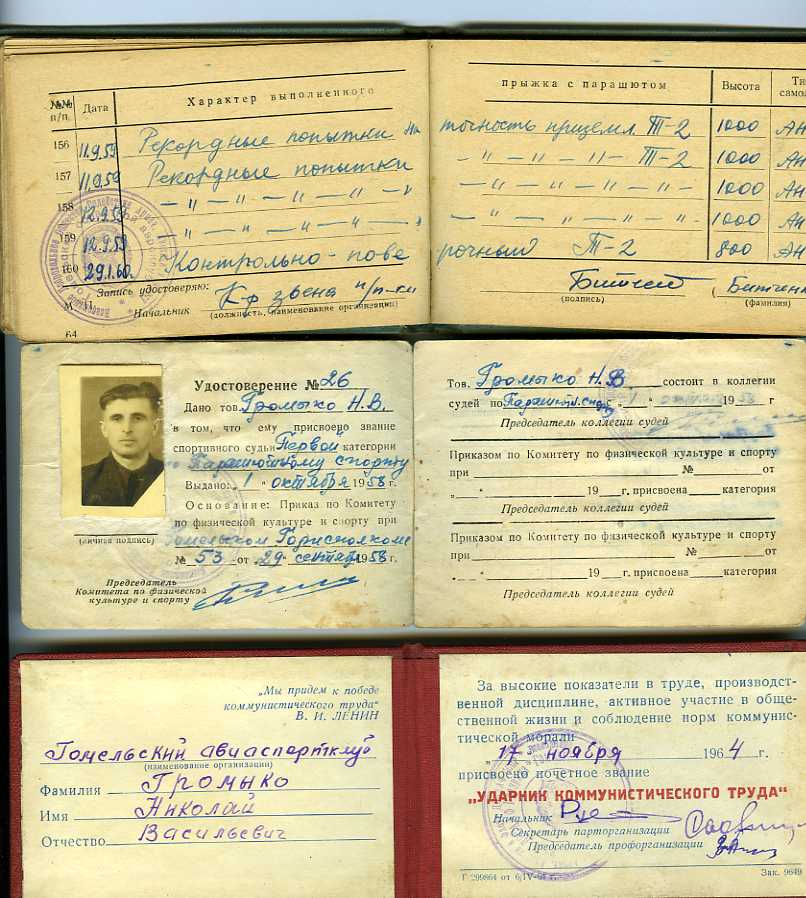 №№ п/п. Дата Характер выполненного прыжка с парашютом Высота Ти самол
156 11.9.59 Рекордные попытки на точность приземл. Т-2 1000 АН
157 11.9.59 Рекордные попытки — " — " — " — Т-2 1000 АН
158 12.9.59 — " — " — " — " — " — " — " — " — 1000 АН
159 12.9.59 — " — " — " — " — " — " — " — " — 1000 АН
160 29.1.60. Контрольно-поверочный Т-2 800 АН
Запись удостоверяю:
М. П. Начальник звена п/п-ки
(должность, наименование организации) (подпись) (фамилия)
64
Удостоверение № 26
Дано тов. Громыко Н.В.
в том, что ему присвоено звание
спортивного судьи Первой категории
по Парашютному спорту
Выдано: „1" октября 1958 г.
Основание: Приказ по Комитету
по физической культуре и спорту при
Гомельском Горисполкоме
№ 53 от 29 сентября 1958 г.
(личная подпись)
Председатель
Комитета по физической
культуре и спорту
Тов. Громыко Н.В. состоит в коллегии
судей по Парашютн. спорту с „1" октября 1958 г
Председатель коллегии судей
Приказом по Комитету по физической культуре и спорту
при № от
„ " 19 г. присвоена категория
Председатель коллегии судей
Приказом по Комитету по физической культуре и спорту
при № от
„ " 19 г. присвоена категория
Председатель коллегии судей
„Мы придем к победе
коммунистического труда"
В. И. ЛЕНИН
Гомельский авиаспортклуб
(наименование организации)
Фамилия Громыко
Имя Николай
Отчество Васильевич
За высокие показатели в труде, производст-
венной дисциплине, активное участие в обще-
ственной жизни и соблюдение норм коммунис-
тической морали
„17" ноября 1964 г.
присвоено почетное звание
„УДАРНИК КОММУНИСТИЧЕСКОГО ТРУДА"
Начальник
Секретарь парторганизации
Председатель профорганизации
Зак. 9649